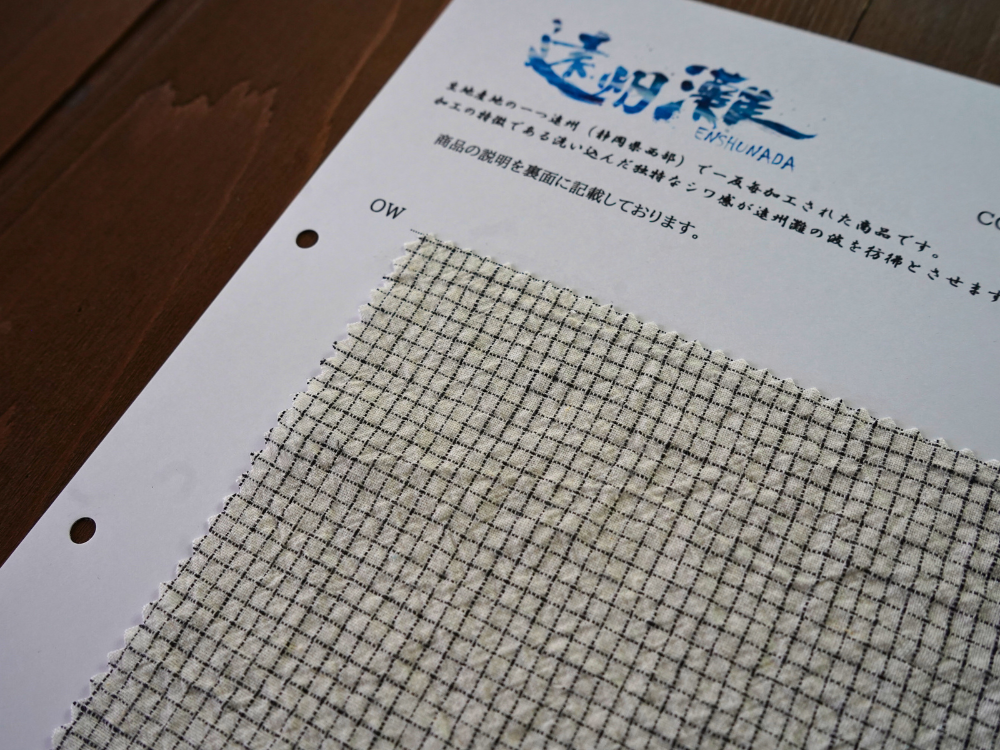 遠州灘
ENSHUNADA
生地産地の一つ遠州(静岡県西部)で一反毎加工された商品です。
加工の特徴である洗い込んだ独特なシワ感が遠州灘の波を彷彿とさせます
商品の説明を裏面に記載しております。
OW
CO